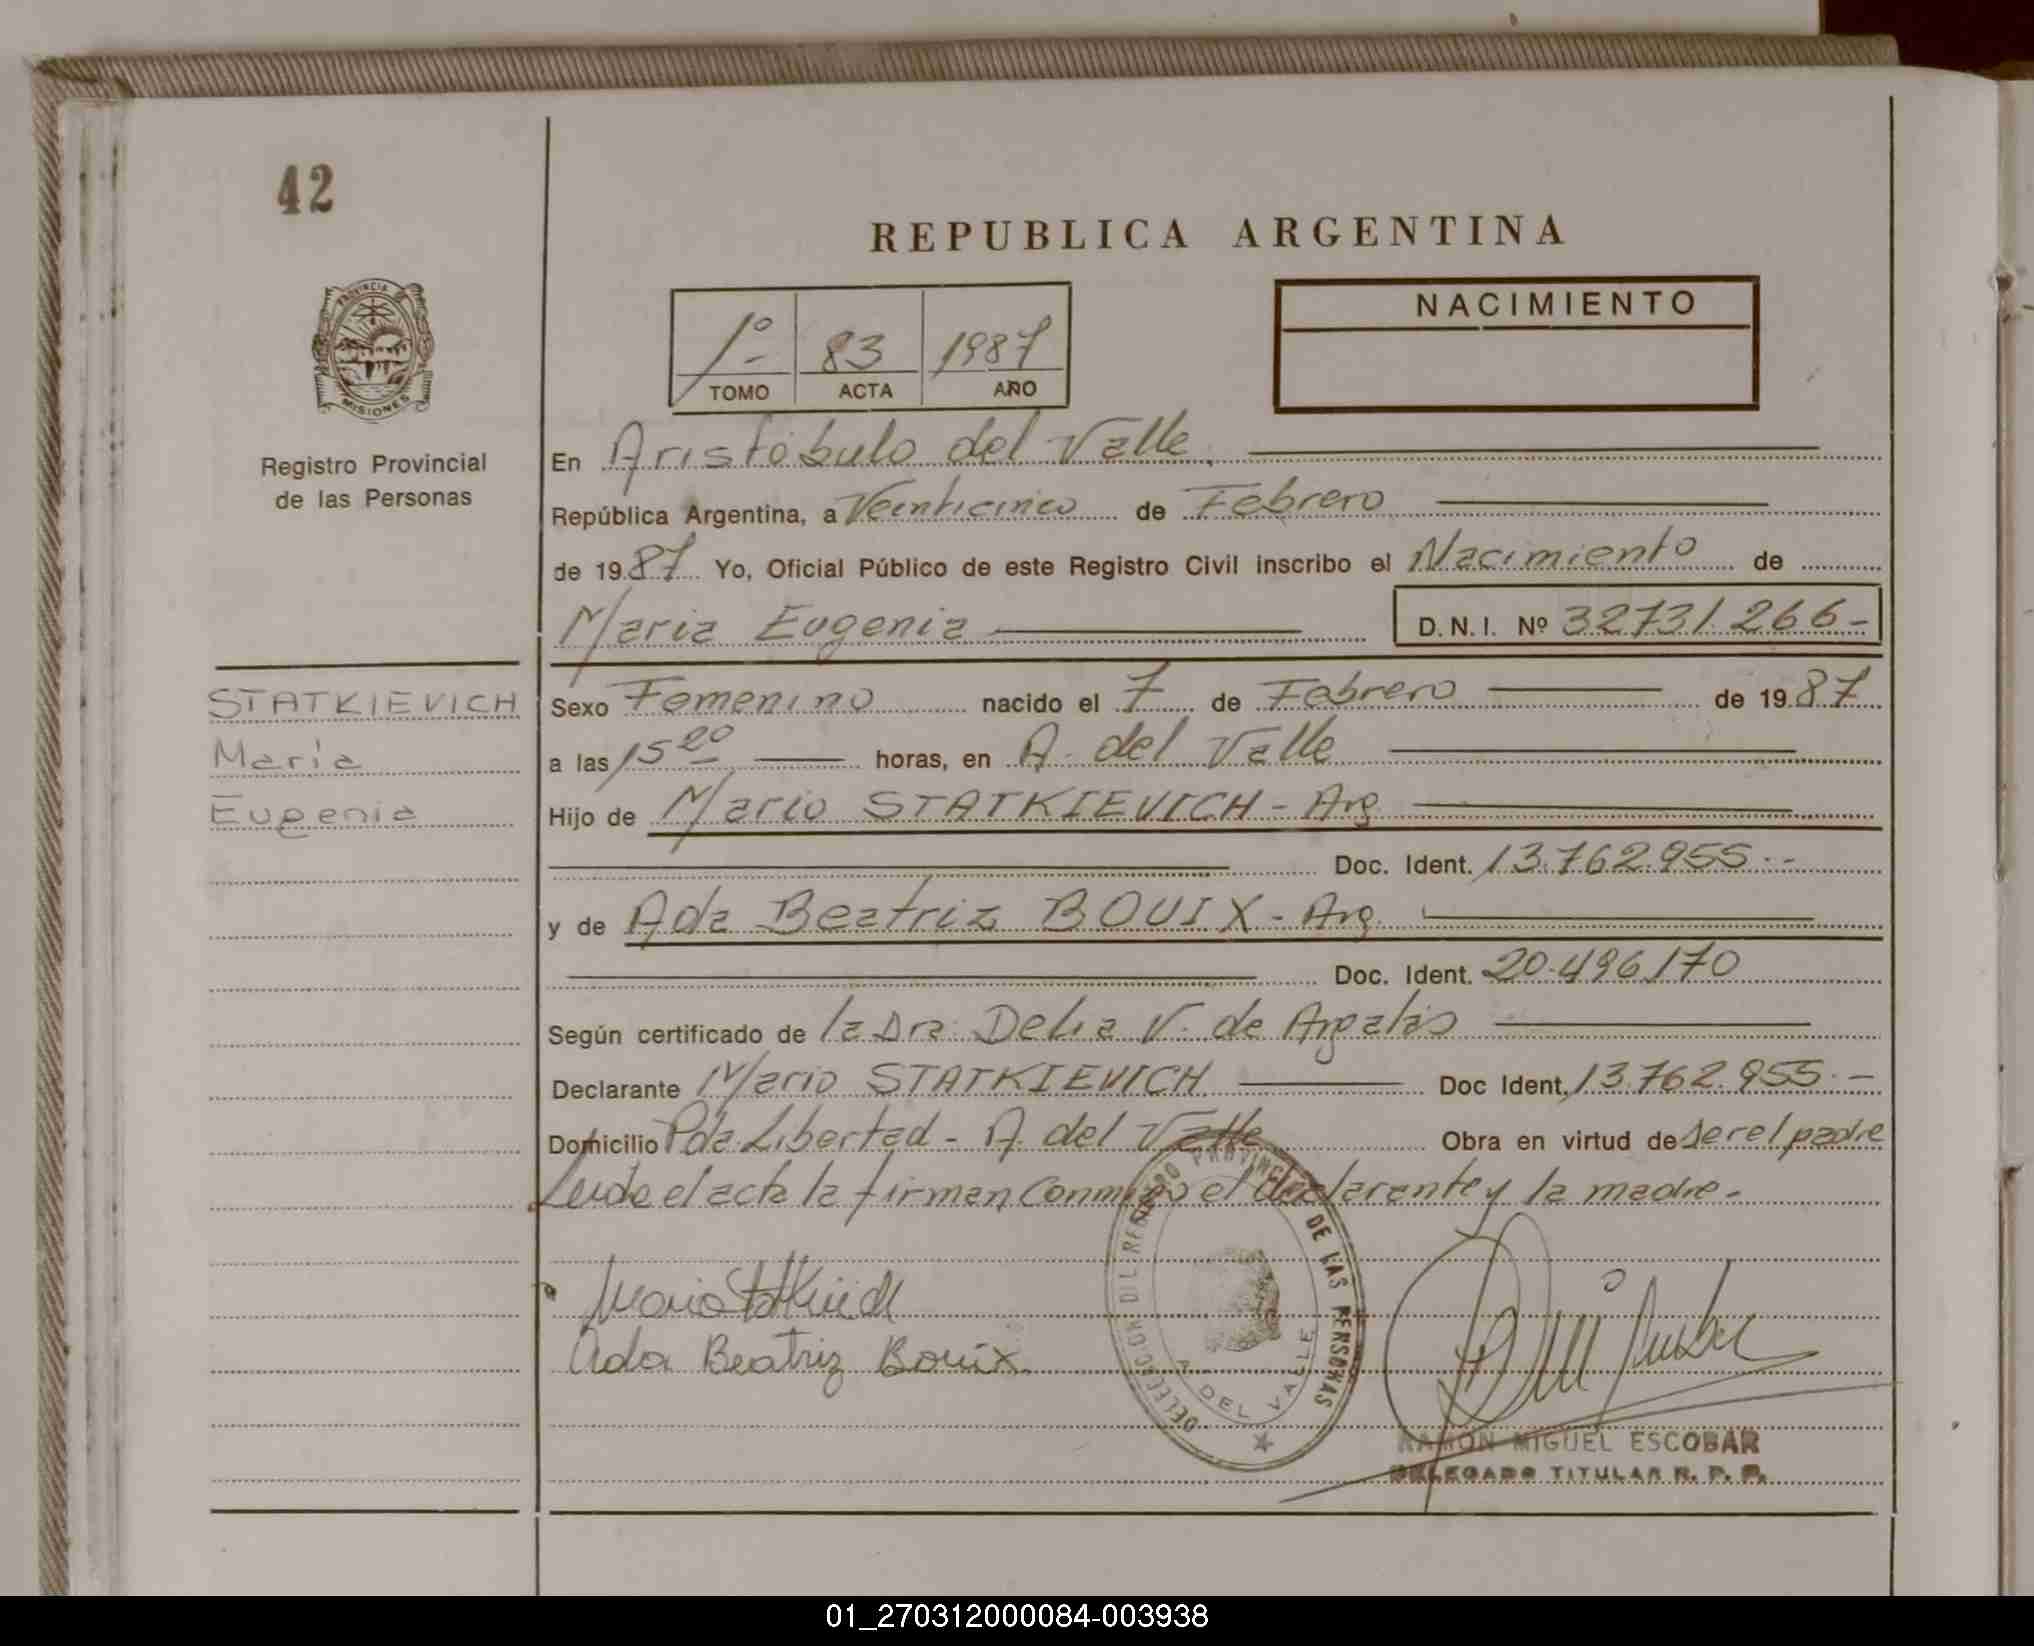 42
REPUBLICA ARGENTINA
PROVINCIA DE
MISIONES
Registro Provincial
de las Personas
1º 83 1987
TOMO ACTA AÑO
NACIMIENTO
En Aristóbulo del Valle.
República Argentina, a Veinticinco de Febrero
de 1987 Yo, Oficial Público de este Registro Civil inscribo el Nacimiento de
Maria Eugenia D.N.I. Nº 32731.266-
STATKIEVICH
María
Eugenia
Sexo Femenino nacido el 7 de Febrero de 1987
a las 15 20 horas, en A. del Valle
Hijo de Mario STATKIEVICH - Arg.
Doc. Ident. 13.762.955.-
y de Ada Beatriz BOUIX - Arg.
Doc. Ident. 20.496.170
Según certificado de la Dra. Delia V. de
Declarante Mario STATKIEVICH Doc Ident. 13.762.955.-
Domicilio Pda. Libertad - A. del Valle Obra en virtud de ser el padre
Leida el acta la firman conmigo el declarante y la madre.
Mario
Ada Beatriz Bouix
DELEGACION DEL REGISTRO PROVINCIAL DE LAS PERSONAS
A. DEL VALLE
RAMON MIGUEL ESCOBAR
DELEGADO TITULAR R. P. P.
01_270312000084-003938